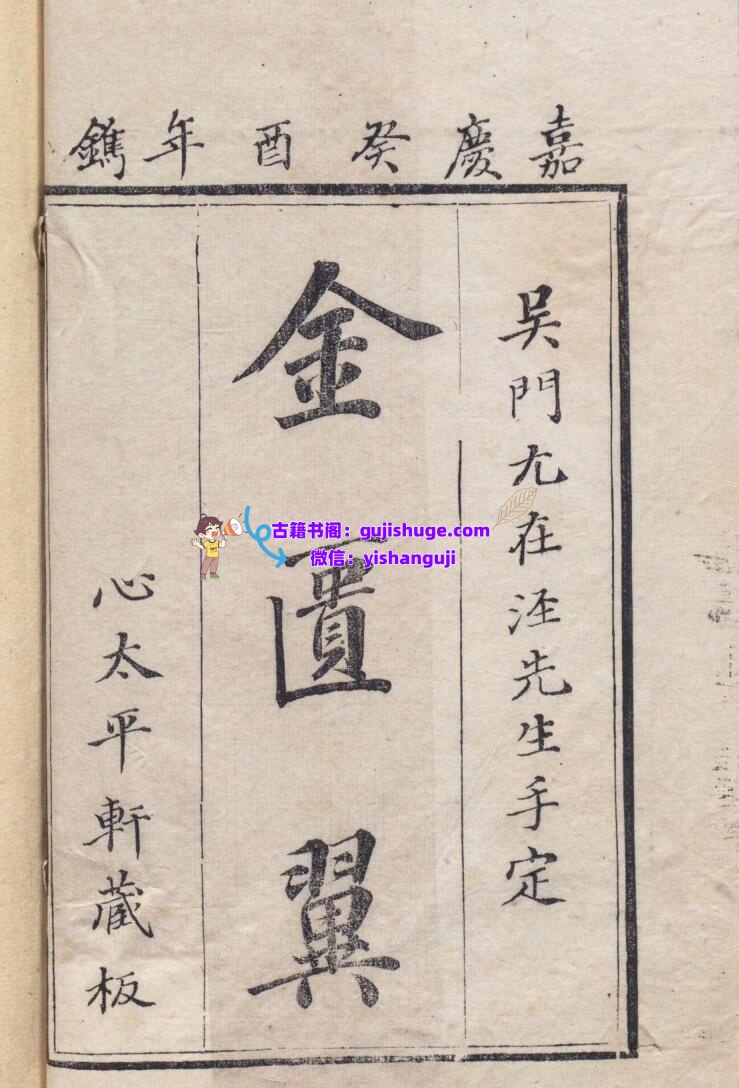 嘉慶癸酉年鐫
吴門尤在涇先生手定
金匱翼
心太平軒藏板
古籍书阁：gujishuge.com
微信：yishanguji